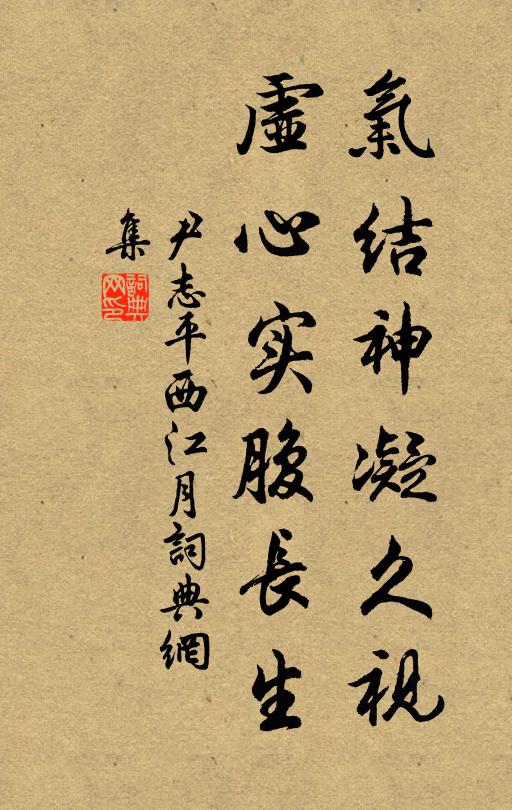 氣結神凝久視
虛心实腹長生
尹志平西江月詞典網
集
詞典
网印